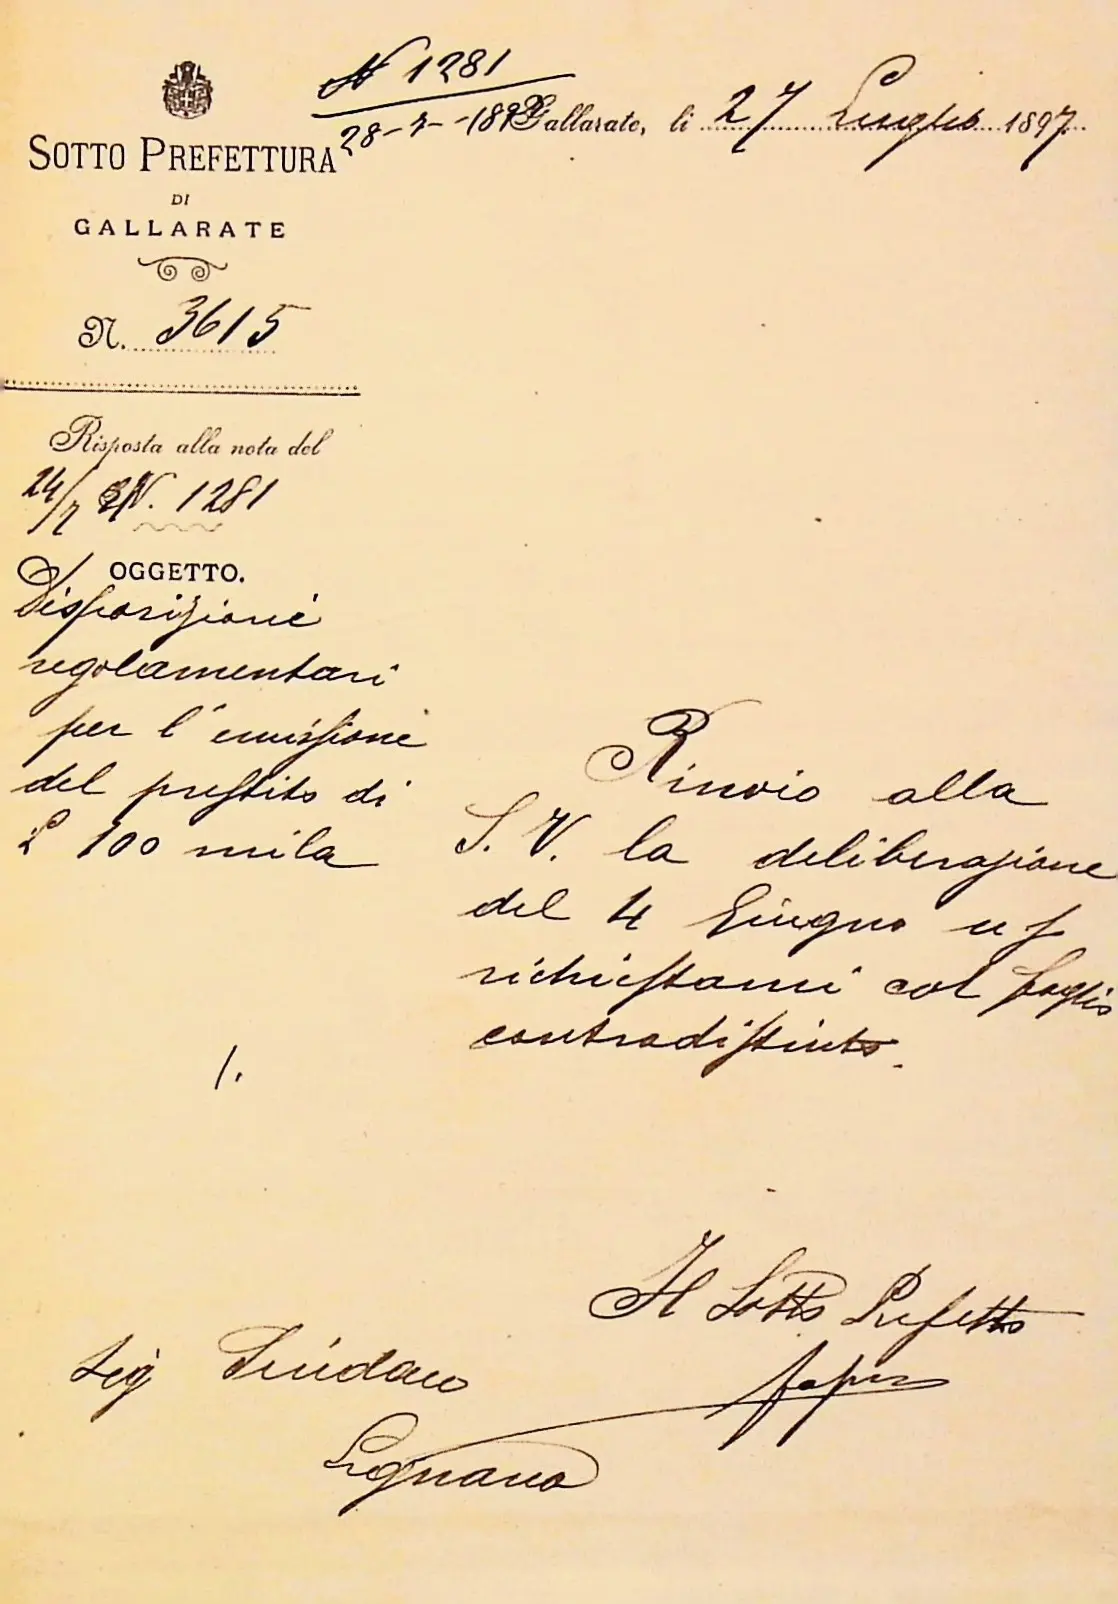 N 1281
28-7-1897
Gallarate, li 27 Luglio 1897.
SOTTO PREFETTURA
DI
GALLARATE
N. 3615
Risposta alla nota del
24/7 N. 1281
OGGETTO.
Disposizioni
regolamentari
per l'emissione
del prestito di
L 100 mila
Rinvio alla
S. V. la deliberazione
del 4 Giugno us
richiestami col foglio
contradistinto.
1.
Il Sotto Prefetto
Sig Sindaco
Legnano